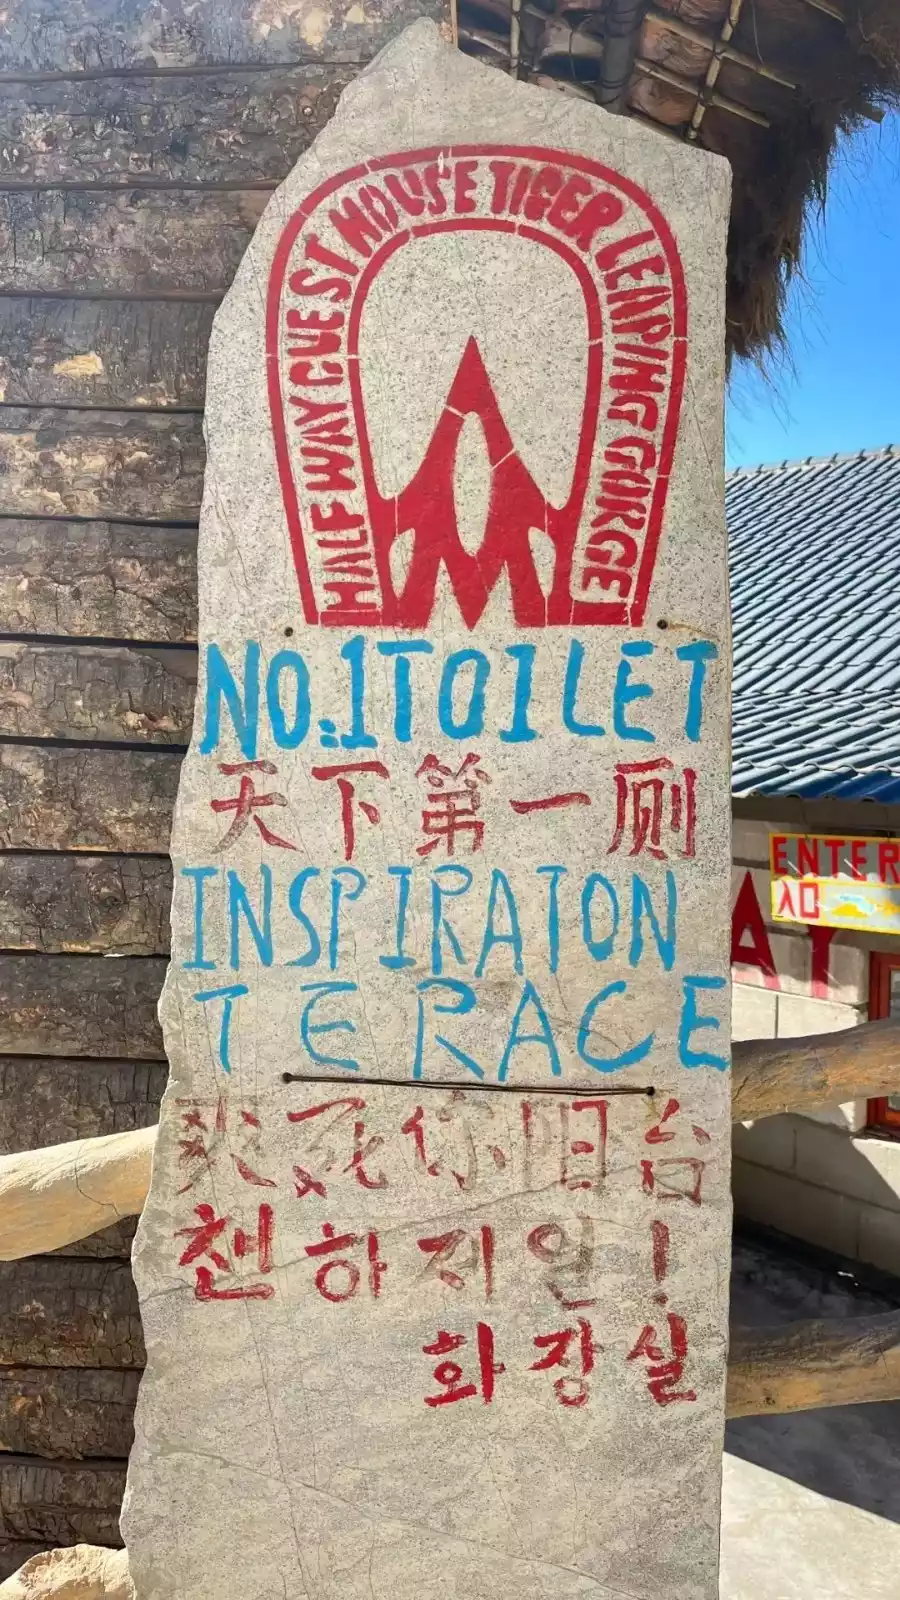 HALF WAY GUEST HOUSE TIGER LEAPING GORGE
NO.1 TOILET
天下第一厕
INSPIRATON
TERACE
爽死你阳台
첸하제일!
화장실
ENTER
AY